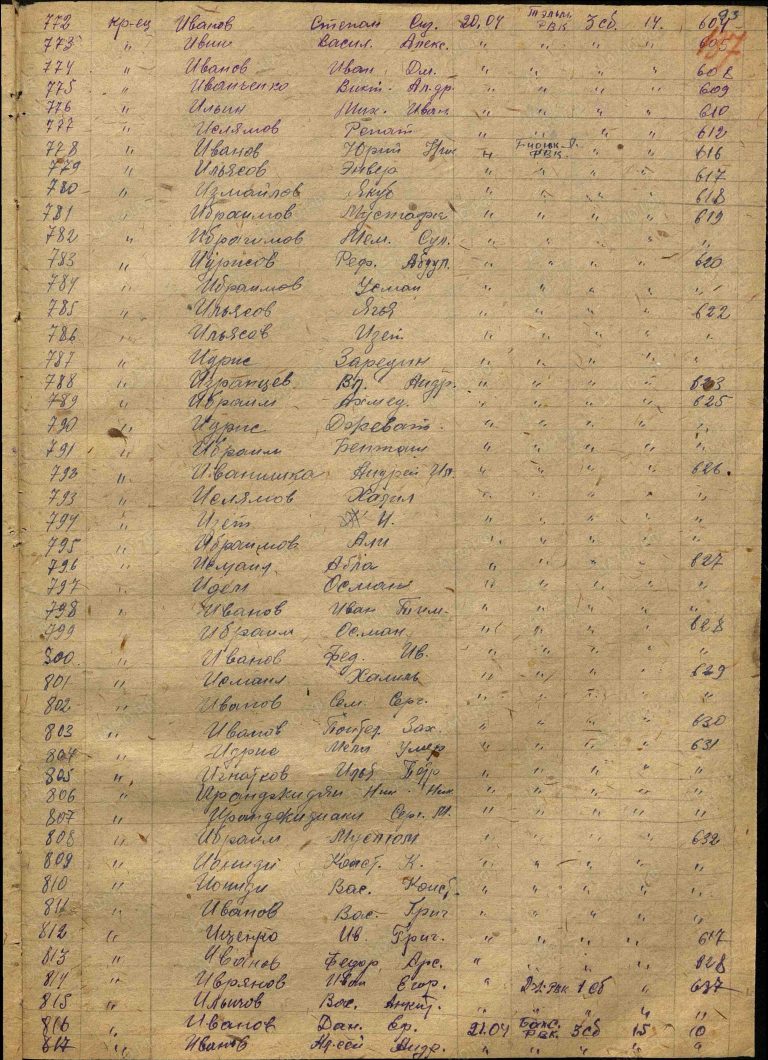 93
157
772 кр-ец Иванов Степан 20.04 Тэльм. РВК 3 сб 14. 604
773 " Ивин Васил. Алекс. " " " " 605
774 " Иванов Иван Дм. " " " " 608
775 " Иванченко Викт. Ал-др. " " " " 609
776 " Ильин Мих. Иван " " " " 610
777 " Ислямов Репат " " " " 612
778 " Иванов Юрий Ник " РВК. " " 616
779 " Ильясов Энвер " " " " 617
780 " Измайлов Якуб " " " " 618
781 " Ибраимов Мустафа " " " " 619
782 " Ибрагимов Мем. Сул. " " " " "
783 " Идрисов Реф. Абдул. " " " " 620
784 " Ибраимов Усман " " " " "
785 " Ильясов Ягья " " " " 622
786 " Ильясов Изет " " " " "
787 " Идрис Заредин " " " " "
788 " Вл. Андр. " " " " 623
789 " Ибраим Ахмед. " " " " 625
790 " Идрис " " " " "
791 " Ибраим " " " " "
792 " Иванишка Андрей " " " " 626.
793 " Ислямов " " " " "
794 " Изет И. " " " " "
795 " Ибраимов Али " " " " "
796 " Исмаил Абла " " " " 627
797 " Осман " " " " "
798 " Иванов Иван Тим. " " " " "
799 " Ибраим Осман. " " " " 628
800. " Иванов Фед. Ив. " " " " "
801 " Исмаил Халиль " " " " 629
802 " Иванов Сем. Серг. " " " " "
803 " Иванов Зах. " " " " 630
804 " Идрис Умер " " " " 631
805 " Игнатков Петр " " " " "
806 " Ник. Ник. " " " " "
807 " Серг. М. " " " " "
808 " Ибраим " " " " 632
809 " Иониди Конст. К. " " " " "
810 " Иониди Вас. Конст. " " " " "
811 " Иванов Вас. Григ " " " " "
812 " Ищенко Ив. Григ. " " " " 617
813 " Иванов Федор Арс. " " " " 628
814 " Иврянов Иван Егор. " РВК 1 сб " 637
815 " Вас. " " " " "
816 " Иванов Дан. 21.04 РВК. 3 сб 15 10
817 " Иванов Андр. " " " " "